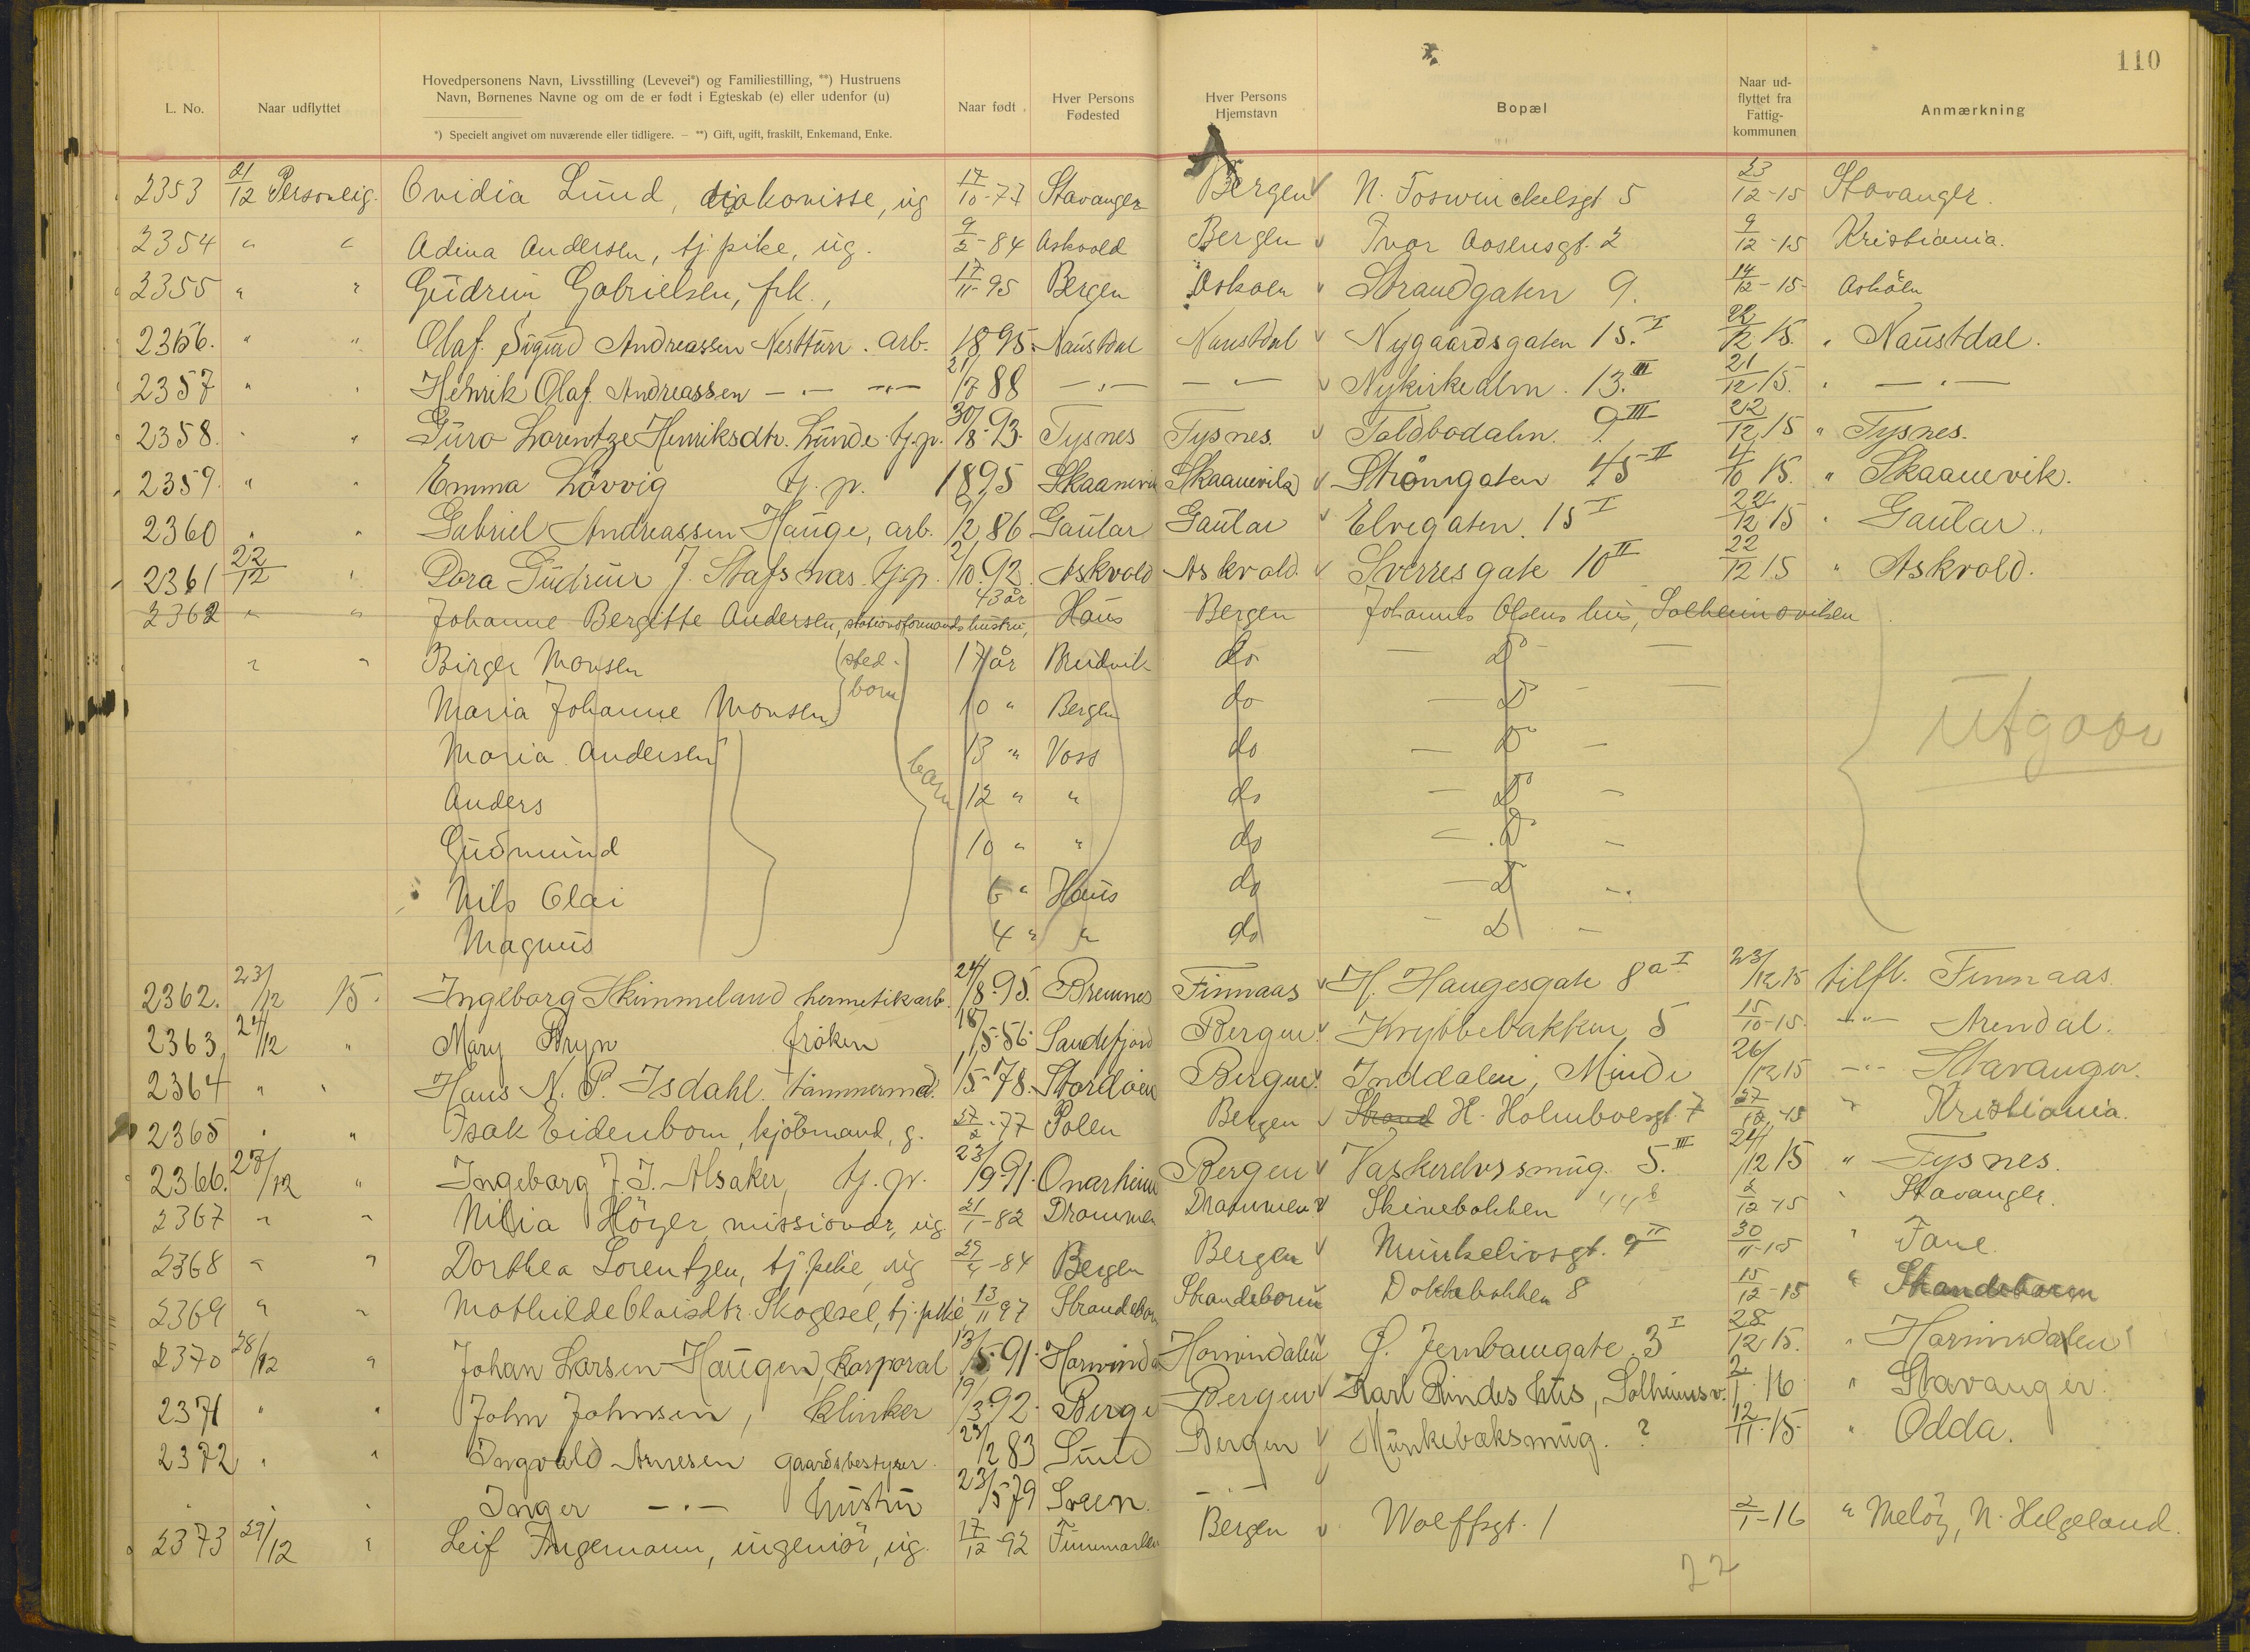 110
L. No. Naar udflyttet Hovedpersonens Navn, Livsstilling (Levevei*) og Familiestilling, **) Hustruens Navn, Børnenes Navne og om de er født i Egteskab (e) eller udenfor (u) Naar født Hver Persons Fødested Hver Persons Hjemstavn Bopæl Naar ud-flyttet fra Fattig-kommunen Anmærkning
*) Specielt angivet om nuværende eller tidligere. — **) Gift, ugift, fraskilt, Enkemand, Enke.
2353 21/12 Personlig. Ovidia Lund, diakonisse, ug 17/10-77 Stavanger Bergen N. Foswinckelsgt 5 23/12-15 Stavanger.
2354 " " Adina Andersen, tj. pike, ug. 9/2-84 Askvold Bergen Ivar Aasensgt. 2 9/12-15 Kristiania.
2355 " " Gudrun Gabrielsen, frk., 17/11-95 Bergen Askøen Strandgaten 9. 14/12-15- Askøen
2356. " " Olaf Sigurd Andreassen Nesttun. arb. 1895. Naustdal Naustdal Nygaardsgaten 15.I 22/12 15. " Naustdal.
2357 " " Henrik Olaf Andreassen — " — — " — 21/7 88 — " — — " — Nykirkealm. 13.III 21/12 15. " — " —
2358. " " Guro Lorentze Henriksdtr. Lunde tj.p. 30/8-93. Tysnes Tysnes. Toldbodalm. 9.III 22/12 15 " Tysnes.
2359. " " Emma Løvvig tj. p. 1895 Skaanevik Skaanevik Strømgaten 45 II 4/10 15. " Skaanevik.
2360 " " Gabriel Andreassen Hauge, arb. 6/12 86 Gaular Gaular Elvegaten. 15 I 22/12 15 " Gaular.
2361 22/12 " Dora Gudrun J. Stafsnas tj.p. 2/10.92. Askvold Askvold. Sverresgate 10 II 22/12 15 " Askvold.
2362 " " Johanne Bergitte Andersen, stationsformands hustru, 43 år Haus Bergen Johannes Olsens hus, Solheimsviken
" " Birger Monsen sted- 17 år Bruvik do — D° —
Maria Johanne Monsen born 10 " Bergen do — D° —
Maria Andersen 13 " Voss do — D° —
barn
Utgaar
Anders 12 " " do — D° —
Gudmund 10 " " do — D° —
Nils Olai 6 " Haus do — D° —
Magnus 4 " " do — D —
2362. 23/12 15. Ingeborg Skimmeland hermetikarb. 24/8-95. Bremnes Finnaas H. Haugesgate 8a I 23/12 15 tilfl. Finnaas.
2363 24/12 " Mary Bryn frøken 18/5-56. Sandefjord Bergen Krybbebakken 5 15/10-15. — " — Arendal.
2364 " " Hans N. P. Isdahl. tømmermd. 1/5-78. Stordøen Bergen Inddalen, Minde 26/12 15 — " — Stavanger.
2365 " " Isak Eidenbom, kjøbmand, g. 27/2-77 Polen Bergen Strand H. Holmboesgt. 7 27/12-15 " Kristiania.
2366. 27/12 " Ingeborg J. J. Alsaker, tj. p. 23/9 91. Onarheim Bergen Vaskerelvssmug. 5.III 24/12 15 " Tysnes.
2367 " " Nilia Höyer, missionær, ug. 21/1-82 Drammen Drammen Skivebakken 44b 2/12-15 " Stavanger.
2368 " " Dorthea Lorentzen, tj. pike, ug 29/4-84 Bergen Bergen Munkelivsgt. 9 II 30/11-15 " Fane.
2369 " " Mathilde Olaisdtr. Skogsel, tj. pike 13/11 97 Strandebarm Strandebarm Dokkebakken 8 15/12-15 " Strandebarm
2370 28/12 " Johan Larsen Haugen, korporal 13/5-91. Hornindal Hornindalen Ø. Jernbanegate 3 I 28/12 15. " Hornindalen
2371 " " John Johnsen, klinker 19/3-92. Bergen Bergen Karl Rindes hus, Solheimsv. 2/1-16 " Stavanger.
2372 " " Ingvald Arnesen gaardsbestyrer. 23/12 83 Sund Bergen Munkebæksmug. ? 12/11-15- " Odda.
" " " Inger — " — hustru 23/5 79 Sveen. — " —
2373 29/12 " Leif Ingemann, ingeniør, ug. 17/12-92 Finnmarken Bergen Wolffsgt. 1 2/1-16 " Meløy, N. Helgeland.
22